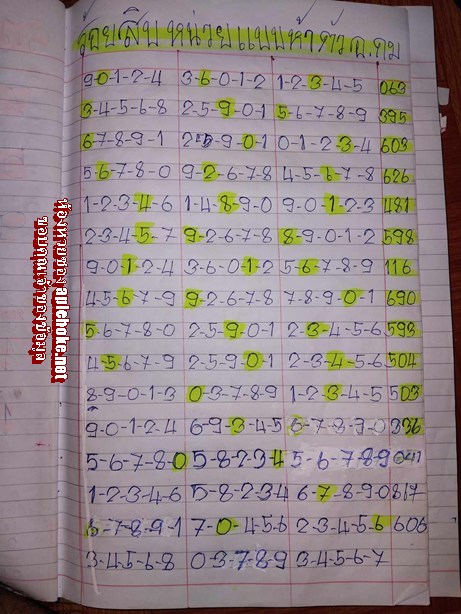 ร้อยสิบหน่วยแบบห้าตัวอ.ถม
9-0-1-2-4 3-6-0-1-2 1-2-3-4-5 063
3-4-5-6-8 2-5-9-0-1 5-6-7-8-9 395
6-7-8-9-1 2-5-9-0-1 0-1-2-3-4 603
5-6-7-8-0 9-2-6-7-8 4-5-6-7-8 626
1-2-3-4-6 1-4-8-9-0 9-0-1-2-3 481
2-3-4-5-7 9-2-6-7-8 8-9-0-1-2 598
9-0-1-2-4 3-6-0-1-2 5-6-7-8-9 116
4-5-6-7-9 9-2-6-7-8 7-8-9-0-1 690
5-6-7-8-0 2-5-9-0-1 2-3-4-5-6 593
4-5-6-7-9 2-5-9-0-1 2-3-4-5-6 504
8-9-0-1-3 0-3-7-8-9 1-2-3-4-5 503
9-0-1-2-4 6-9-3-4-5 6-7-8-9-0 336
5-6-7-8-0 5-8-2-3-4 5-6-7-8-9 041
1-2-3-4-6 5-8-2-3-4 6-7-8-9-0 817
6-7-8-9-1 7-0-4-5-6 2-3-4-5-6 606
3-4-5-6-8 0-3-7-8-9 3-4-5-6-7
ห้องหวยซอง apichoke.net
ขอบคุณเจ้าของข้อมูล